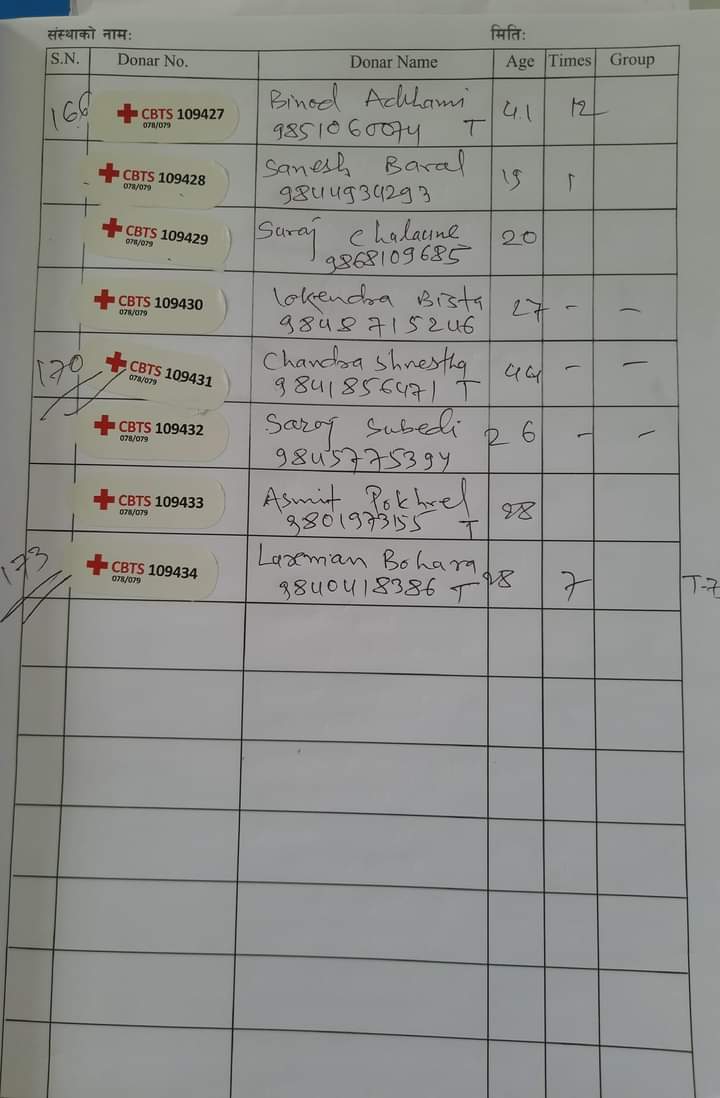 संस्थाको नामः मितिः
S.N. Donar No. Donar Name Age Times Group
166 CBTS 109427 Binod Adhkami 41 12
078/079 9851060074 T
CBTS 109428 Sanesh Baral 19 1
078/079 9844934293
CBTS 109429 Saraj Chalaune 20
078/079 9868109685
CBTS 109430 lokendra Bista 27 - -
078/079 9848715246
170 CBTS 109431 Chandra Shrestha 44 - -
078/079 9841856471 T
CBTS 109432 Saroj Subedi 26 - -
078/079 9845775394
CBTS 109433 Asmit Pokhrel 28
078/079 9801973155 T
173 CBTS 109434 Laxmian Bohara 28 7 T-7
078/079 9840418386 T